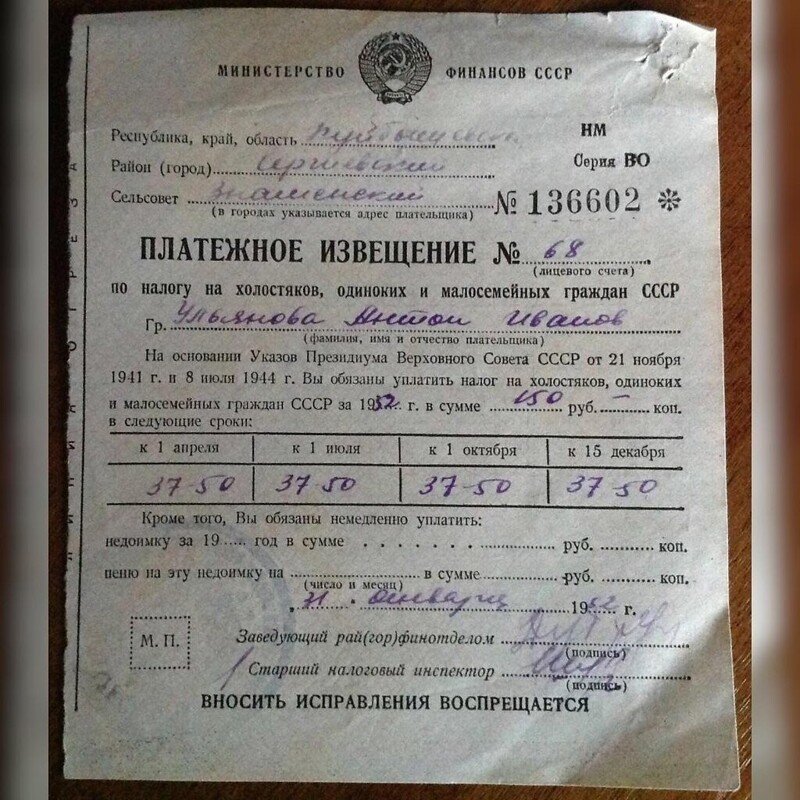 МИНИСТЕРСТВО ФИНАНСОВ СССР
Республика, край, область Куйбышевск.
НМ
Район (город) Сергиевский
Серия ВО
Сельсовет Знаменский
(в городах указывается адрес плательщика)
№ 136602 ✻
ПЛАТЕЖНОЕ ИЗВЕЩЕНИЕ № 68
(лицевого счета)
по налогу на холостяков, одиноких и малосемейных граждан СССР
Гр. Ульянова Антон Иванов
(фамилия, имя и отчество плательщика)
На основании Указов Президиума Верховного Совета СССР от 21 ноября
1941 г. и 8 июля 1944 г. Вы обязаны уплатить налог на холостяков, одиноких
и малосемейных граждан СССР за 1952 г. в сумме 150 руб. — коп.
в следующие сроки:
к 1 апреля к 1 июля к 1 октября к 15 декабря
37-50 37-50 37-50 37-50
Кроме того, Вы обязаны немедленно уплатить:
недоимку за 19..... год в сумме руб. коп.
пеню на эту недоимку на в сумме руб. коп.
(число и месяц)
„31 " января 1952 г.
М. П.
Заведующий рай(гор)финотделом
(подпись)
Старший налоговый инспектор
(подпись)
ВНОСИТЬ ИСПРАВЛЕНИЯ ВОСПРЕЩАЕТСЯ
ЛИНИЯ ОТРЕЗА